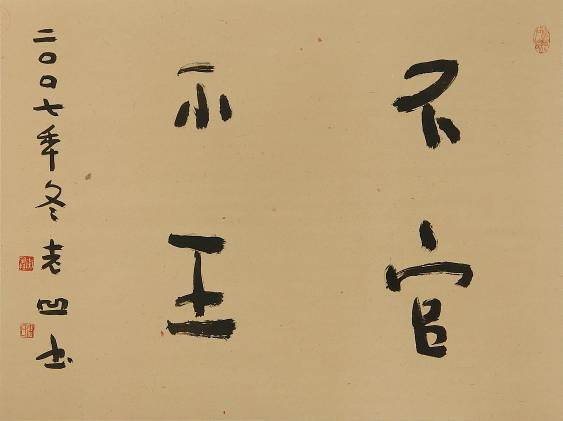 不官
不王
二〇〇七年冬老凹书